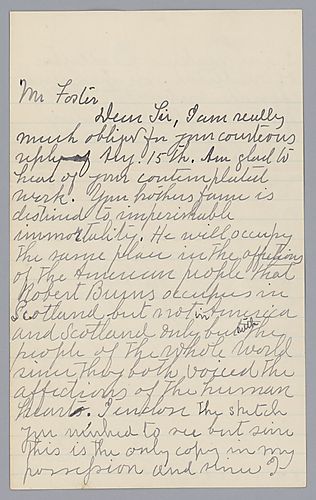 Mr Foster
Dear Sir, I am really
much obliged for your courteous
reply of Sy. 15th. Am glad to
hear of your contemplated
work. Your brothers fame is
destined to imperishable
immortality. He will occupy
the same place in the affections
of the American people that
Robert Burns occupies in
Scotland but not in America
and Scotland only but with the
people of the whole world
since they both voiced the
affections of the human
heart. I enclose the sketch
you wished to see but since
this is the only copy in my
possession and since I